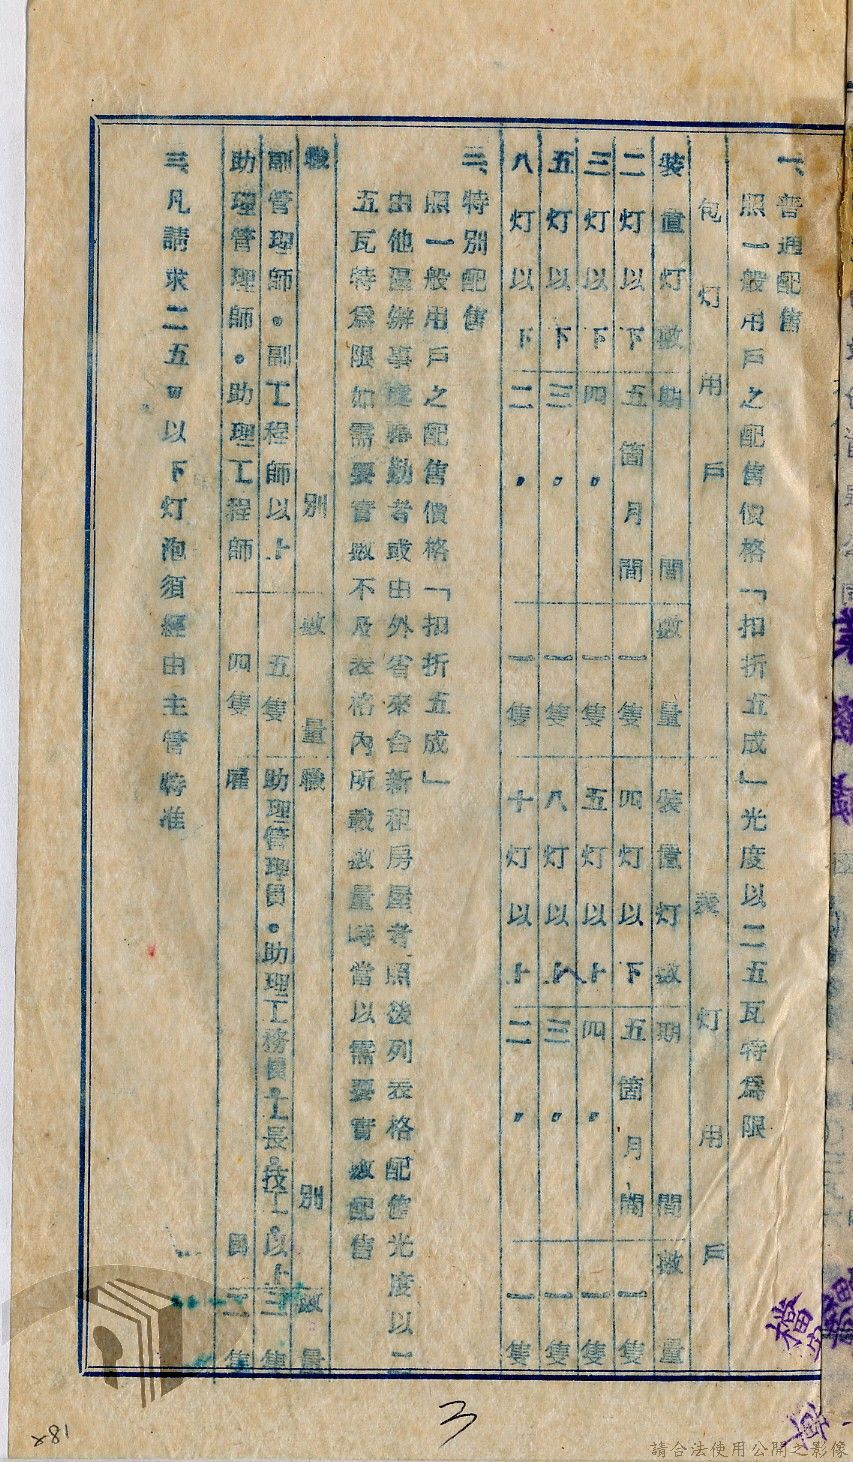 一、普通配售
照一般用戶之配售價格「扣折五成」光度以二五瓦特為限
包灯用戶 表灯用戶
裝置灯數 期間 數量 裝置灯數 期間 數量
二灯以下 五箇月間 一隻 四灯以下 五箇月間 一隻
三灯以下 四〃 一隻 五灯以上 四〃 一隻
五灯以下 三〃 一隻 八灯以上 三〃 一隻
八灯以下 二〃 一隻 十灯以上 二〃 一隻
二、特別配售
照一般用戶之配售價格「扣折五成」
由他區辦事處轉勤者或由外省來台新租房屋者照後列表格配售光度以二
五瓦特為限如需要實數不及表格內所載數量時當以需要實數配售
職別 數量 職別 數量
副管理師。副工程師以上 五隻 助理管理員。助理工務員工長。技工以上 三隻
助理管理師。助理工程師 四隻 雇員 二隻
三、凡請求二五W以下灯泡須經由主管特准
3
281
請合法使用公開之影像